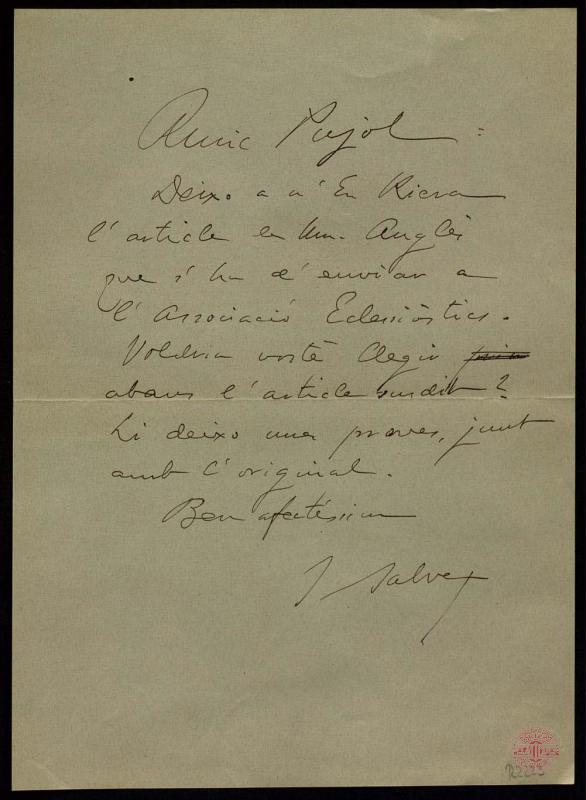 Amic Pujol:
Deixo a n'En Riera
l'article de Mn. Anglès
que s'ha d'enviar a
l'Associació Eclesiàstica.
Voldria vostè llegir
abans l'article susdit?
Li deixo unes proves, junt
amb l'original.
Ben afectíssim
J Salvat
R2223